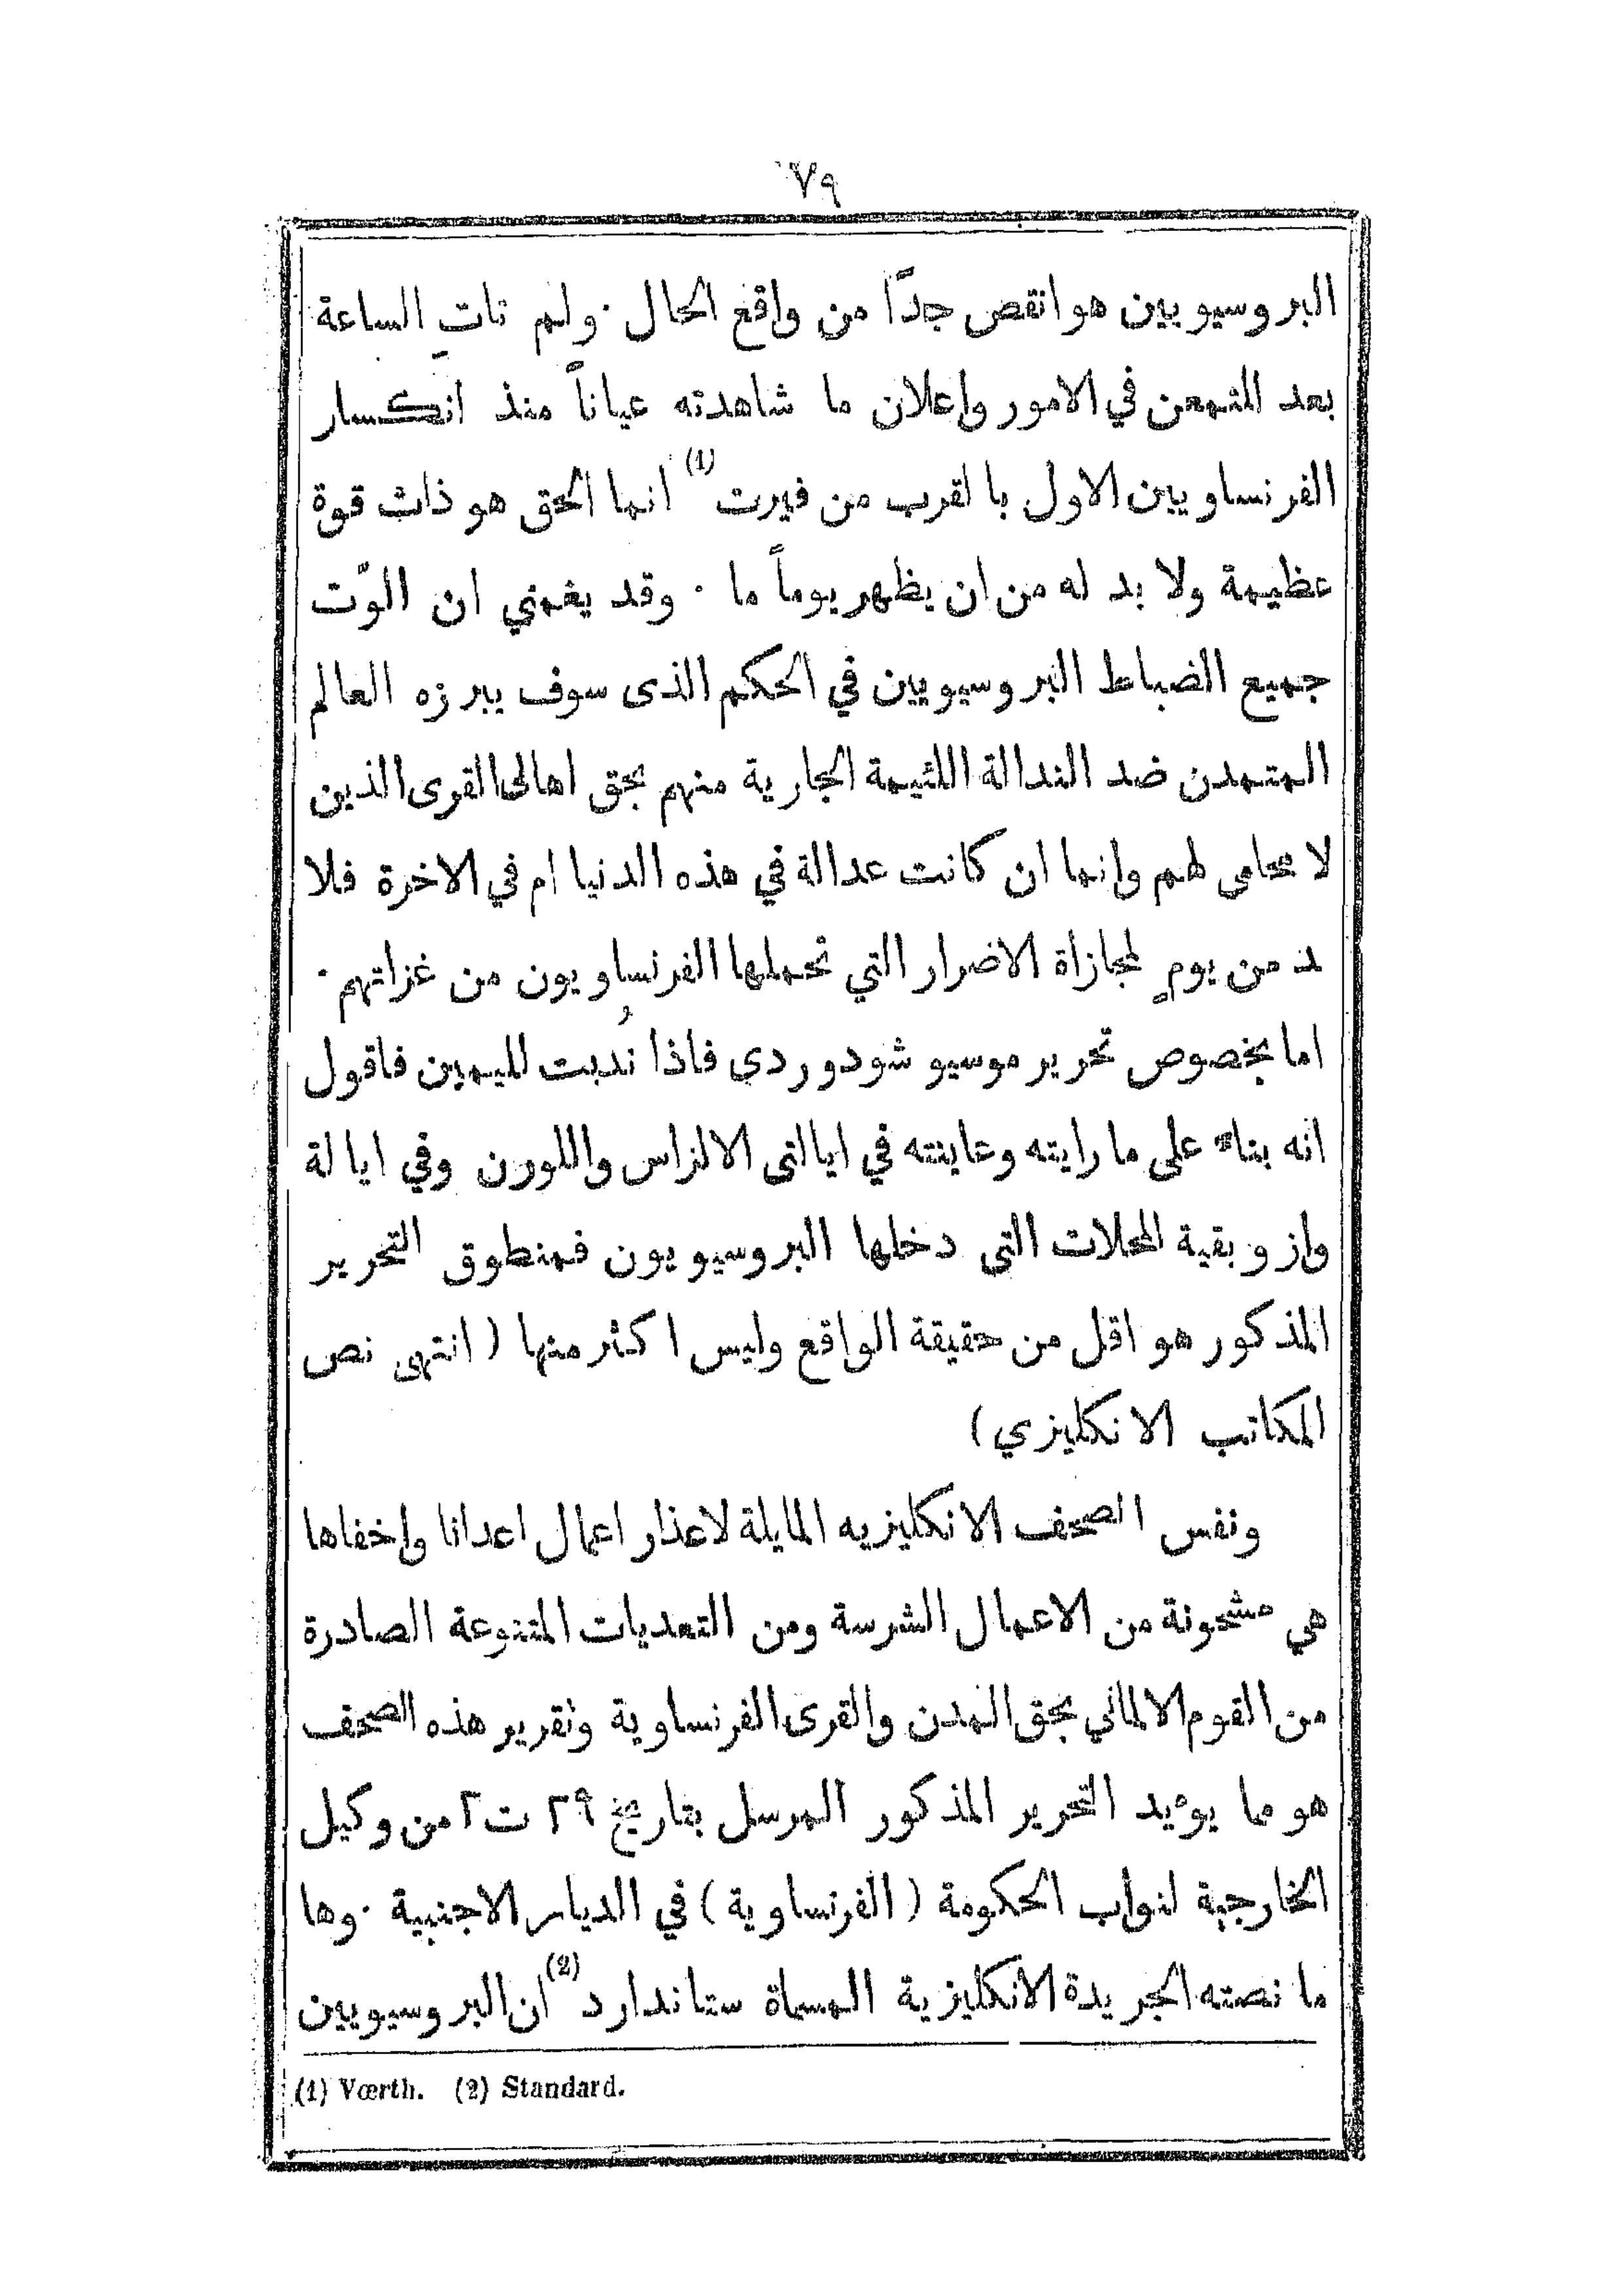 ٧٩
البروسيويين هو انقص جدًّا من واقع الحال · ولم تاتِ الساعة
بعد للتمعن في الامور واعلان ما شاهدته عياناً منذ انكسار
الفرنساويين الاول بالقرب من فيرت (1) انما الحق هو ذات قوة
عظيمة ولا بد له من ان يظهر يوماً ما · وقد يغمني ان الوّت
جميع الضباط البروسيويين في الحكم الذى سوف يبرزه العالم
المتمدن ضد الندالة اللئيمة الجارية منهم بحق اهالى القرى الذين
لا محامى لهم وانما ان كانت عدالة في هذه الدنيا ام في الاخرة فلا
بد من يومٍ لمجازاة الاضرار التي تحملها الفرنساويون من غزاتهم ·
اما بخصوص تحرير موسيو شودوردى فاذا نُدبت لليمين فاقول
انه بناءً على ما رايته وعاينته في ايالتى الالزاس واللورن وفي ايالة
واز وبقية المحلات التى دخلها البروسيويون فمنطوق التحرير
المذكور هو اقل من حقيقة الواقع وليس اكثر منها ( انتهى نص
المكاتب الانكليزي )
ونفس الصحف الانكليزيه المايلة لاعذار اعمال اعدانا واخفاها
هي مشحونة من الاعمال الشرسة ومن التعديات المتنوعة الصادرة
من القوم الالماني بحق المدن والقرى الفرنساوية وتقرير هذه الصحف
هو مما يوءيد التحرير المذكور المرسل بتاريخ ٢٩ ت ٢ من وكيل
الخارجية لنواب الحكومة ( الفرنساوية ) في الديار الاجنبية · وها
ما نصته الجريدة الانكليزية المسماة ستاندارد (2) ان البروسيويين
(1) Vœrth. (2) Standard.